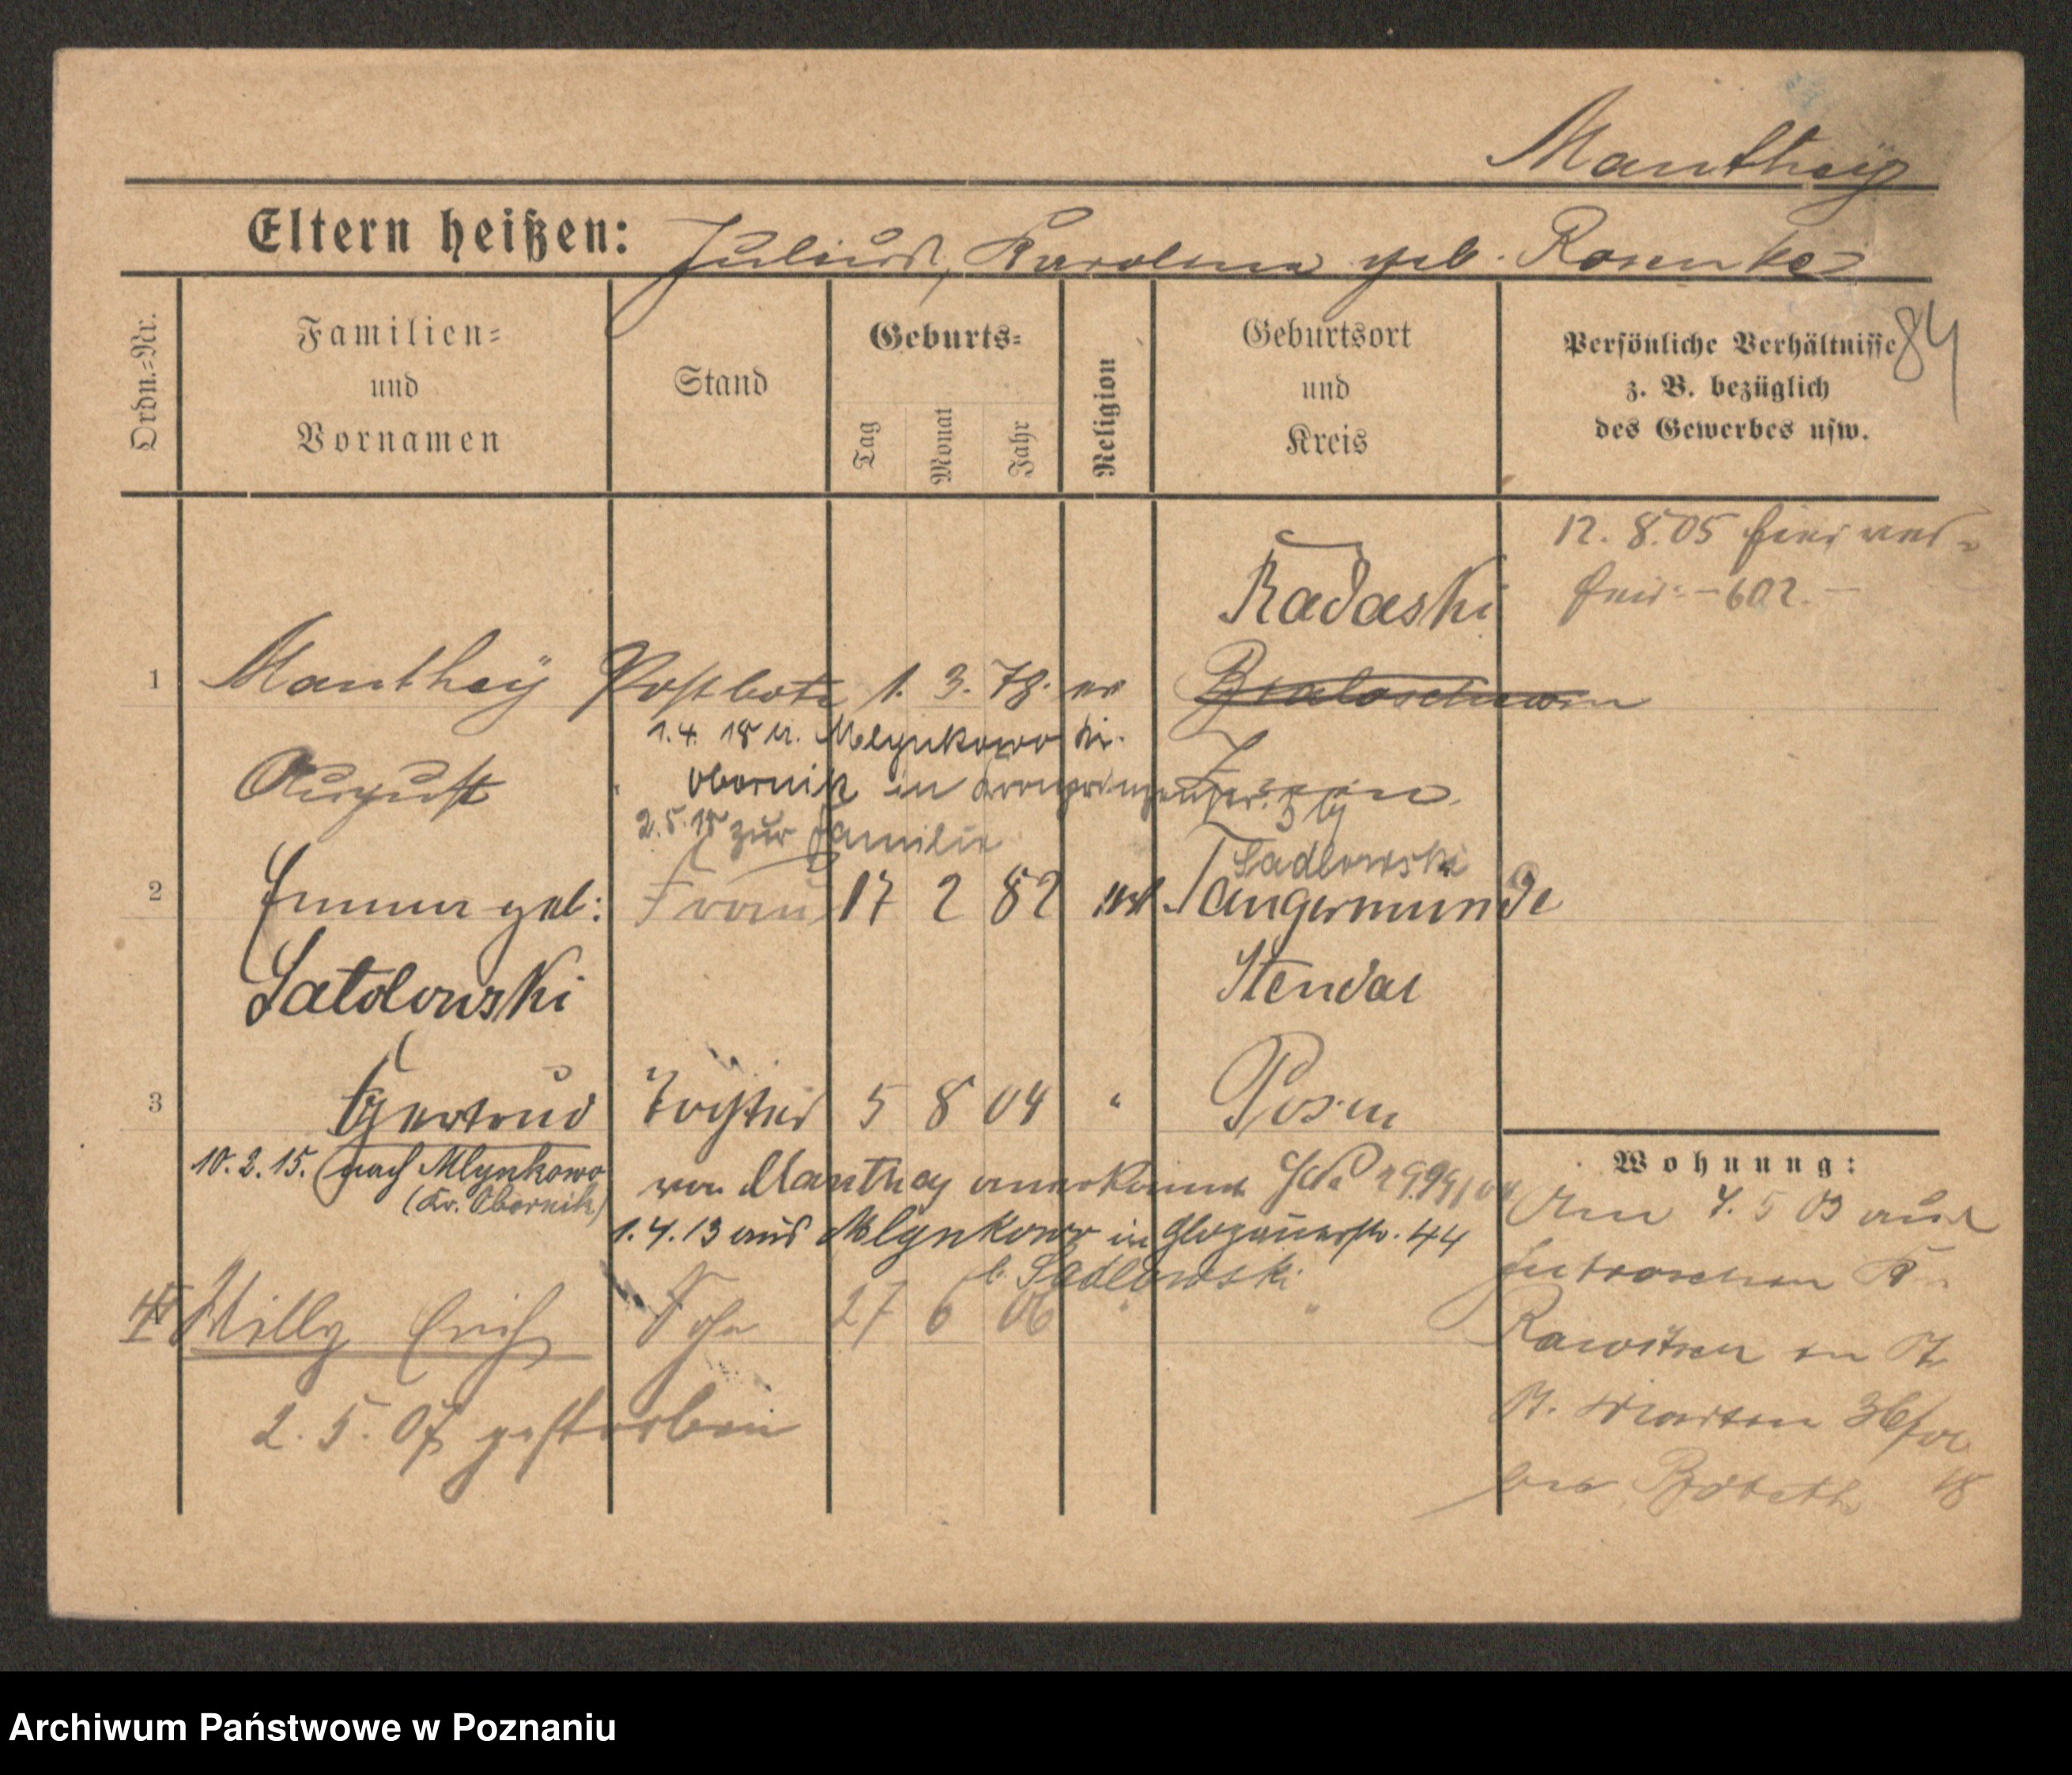 Manthey
Eltern heißen: Julius, Karoline geb. Rosenke
84
Ordn.=Nr.
Familien=
und
Vornamen
Stand
Geburts=
Tag
Monat
Jahr
Religion
Geburtsort
und
Kreis
Persönliche Verhältnisse
z. B. bezüglich
des Gewerbes usw.
12. 8. 05 hier ver-
heir. - 602. -
Radaski
1 Manthey Postbote 1. 3. 78. ev
1.4. 18 u. Mlynkowo Kr.
August
Obornik in Kronprinzenstr.
2.5.18 zur Familie
Sadlowski
2 Emma geb: Frau 17 2 82 Tangermunde
Satolowski Stendal
3 Gertrud Tochter 5 8 04 " Posen
10. 2. 15. nach Mlynkowo
(Kr. Obornik)
von Manthey anerkannt
1. 4. 13 aus Mlynkowo in Glogauerstr. 44
b. Sadlowski
4 Willy Erich Sohn 27 6 06 " "
2. 5. 07 gestorben
Wohnung:
Am 7. 5 03 aus
Jutroschin Kr.
Rawitsch in
St. Martin 36
bei
18
Archiwum Państwowe w Poznaniu